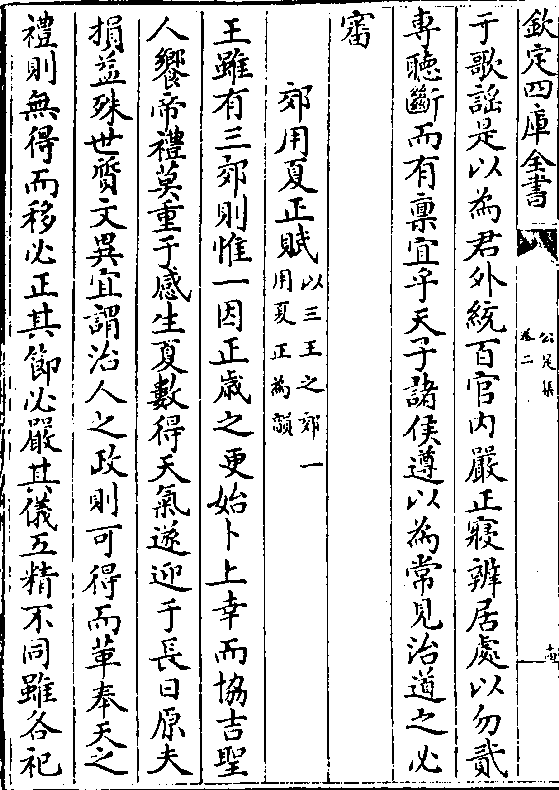 欽定四庫全書
公是集
卷二
于歌謡是以為君外統百官内嚴正寢辨居處以勿貳
専聽斷而有禀宜乎天子諸侯遵以為常見治道之必
審
郊用夏正賦以三王之郊一用夏正為韻
王雖有三郊則惟一因正歳之更始卜上幸而協吉聖
人饗帝禮莫重于感生夏數得天氣遂迎于長日原夫
損益殊世質文異宜謂治人之政則可得而革奉天之
禮則無得而移必正其節必嚴其儀五精不同雖各祀